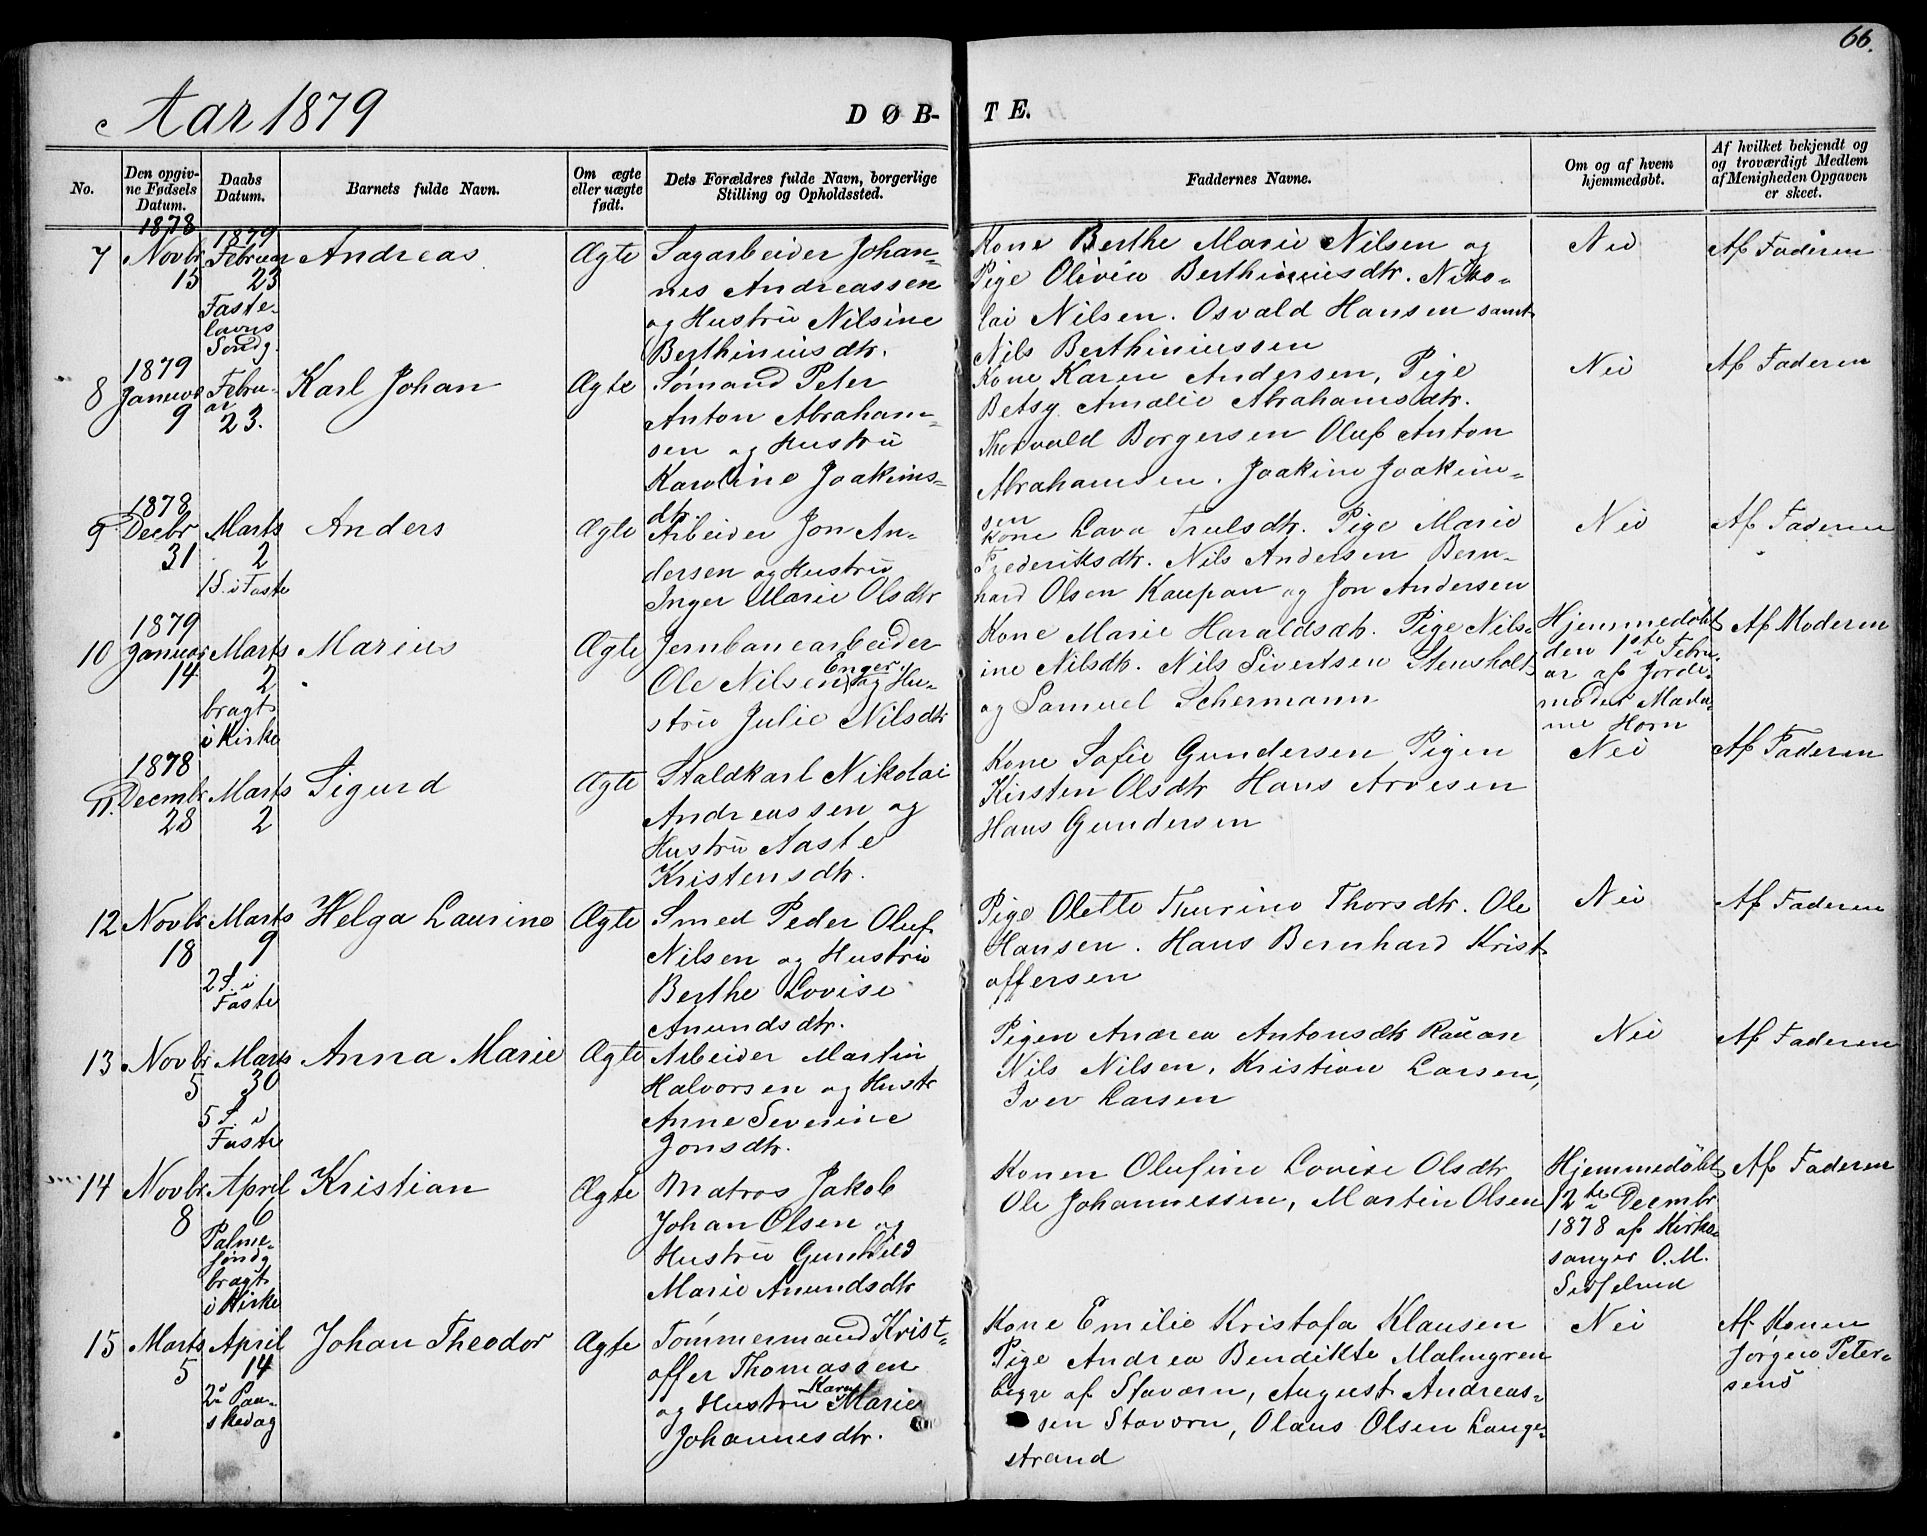 66.
Aar 1879
DØB-
TE.
No.
Den opgiv-
ne Fødsels
Datum.
Daabs
Datum.
Barnets fulde Navn.
Om ægte
eller uægte
født.
Dets Forældres fulde Navn, borgerlige
Stilling og Opholdssted.
Faddernes Navne.
Om og af hvem
hjemmedøbt.
Af hvilket bekjendt og
og troværdigt Medlem
af Menigheden Opgaven
er skeet.
7
1878
Novbr
15
1879
Februar
23
Faste-
lavns
Søndg.
Andreas
Ægte
Sagarbeider Johan-
nes Andreassen
og Hustru Nilsine
Berthiniusdtr.
Kone Berthe Marie Nilsen og
Pige Olivia Berthiniusdtr. Niko-
lai Nilsen. Osvald Hansen samt
Nils Berthiniussen
Nei
Af Faderen
8
1879
Januar
9
Febru-
ar
23.
Karl Johan
Ægte
Sømand Peter
Anton Abraham-
sen og Hustru
Karoline Joakims-
dtr.
Kone Karen Andersen, Pige
Betsy Amalie Abrahamsdtr.
Thorvald Borgersen Oluf Anton
Abrahamsen. Joakim Joakim-
sen
Nei
Af Faderen
9
1878
Decbr
31
Marts
2
1 S. i Faste
Anders
Ægte
Arbeider Jon An-
dersen og Hustru
Inger Marie Olsdtr
Kone Lava Trulsdtr. Pige Marie
Frederiksdtr. Nils Andersen Bern-
hard Olsen Kaupan og Jon Andersen
Nei
Af Faderen
10
1879
Januar
14
Marts
2
bragt
i Kirke
Marius
Ægte
Jernbanearbeider
Ole Nilsen Enger og Hu-
stru Julie Nilsdtr
Kone Marie Haraldsdtr. Pige Nils-
ine Nilsdtr. Nils Sivertsen Stensholt
og Samuel Schermann
Hjemmedøbt
den 1ste Febru-
ar af Jorde-
moder Mada-
me Horn
Af Moderen
11.
1878
Decmbr
28
Marts
2
Sigurd
Ægte
Staldkarl Nikolai
Andreassen og
Hustru Aaste
Kristensdtr.
Kone Sofie Gundersen Pigen
Kirsten Olsdtr Hans Arvesen
Hans Gundersen
Nei
Af Faderen
12
Novbr
18
Marts
9
2 S. i
Faste
Helga Laurine
Ægte
Smed Peder Oluf
Nilsen og Hustru
Berthe Lovise
Anundsdtr.
Pige Olette Thurine Thorsdtr. Ole
Hansen. Hans Bernhard Krist
offersen
Nei
Af Faderen
13
Novbr
5
Marts
30
5 S. i
Faste
Anna Marie
Ægte
Arbeider Martin
Halvorsen og Hustr
Anne Severine
Jonsdtr.
Pigen Andrea Antonsdtr Rauan
Nils Nilsen, Kristian Larsen,
Iver Larsen
Nei
Af Faderen
14
Novbr
8
April
6
Palme-
søndg
bragt
i Kirke
Kristian
Ægte
Matros Jakob
Johan Olsen og
Hustru Gunhild
Marie Anundsdtr
Konen Olufine Lovise Olsdtr
Ole Johannessen, Martin Olsen
Hjemmedøbt
12te Decmbr
1878 af Kirke-
sanger O. M.
Af Faderen
15
Marts
5
April
14
2. Paa-
skedag
Johan Theodor
Ægte
Tømmermand Krist-
offer Thomassen
og Hustru Karen Marie
Johannesdtr.
Kone Emilie Kristofa Klausen
Pige Andrea Bendikte Malmgren
begge af Staværn, August Andreas-
sen Staværn, Olaus Olsen Lange-
strand
Nei
Af Konen
Jørgen Peter-
sens